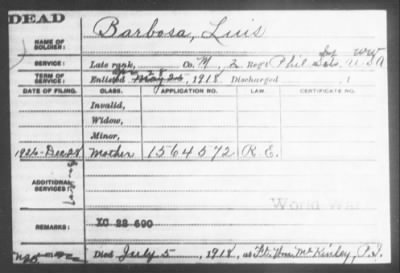 DEAD
NAME OF SOLDIER: Barbosa, Luis
SERVICE: Late rank, Co. M, 2 Reg't Phil Inf. WW U S A
TERM OF SERVICE: Enlisted May 26, 1918 Discharged , 1
DATE OF FILING. CLASS. APPLICATION NO. LAW. CERTIFICATE NO.
Invalid,
Widow,
Minor,
1926-Dec 24 Mother 1564572 R.E.
ADDITIONAL SERVICES:
World W
REMARKS: XC 22 690
Died July 5, 1918, at Ft. Wm. McKinley, P.I.